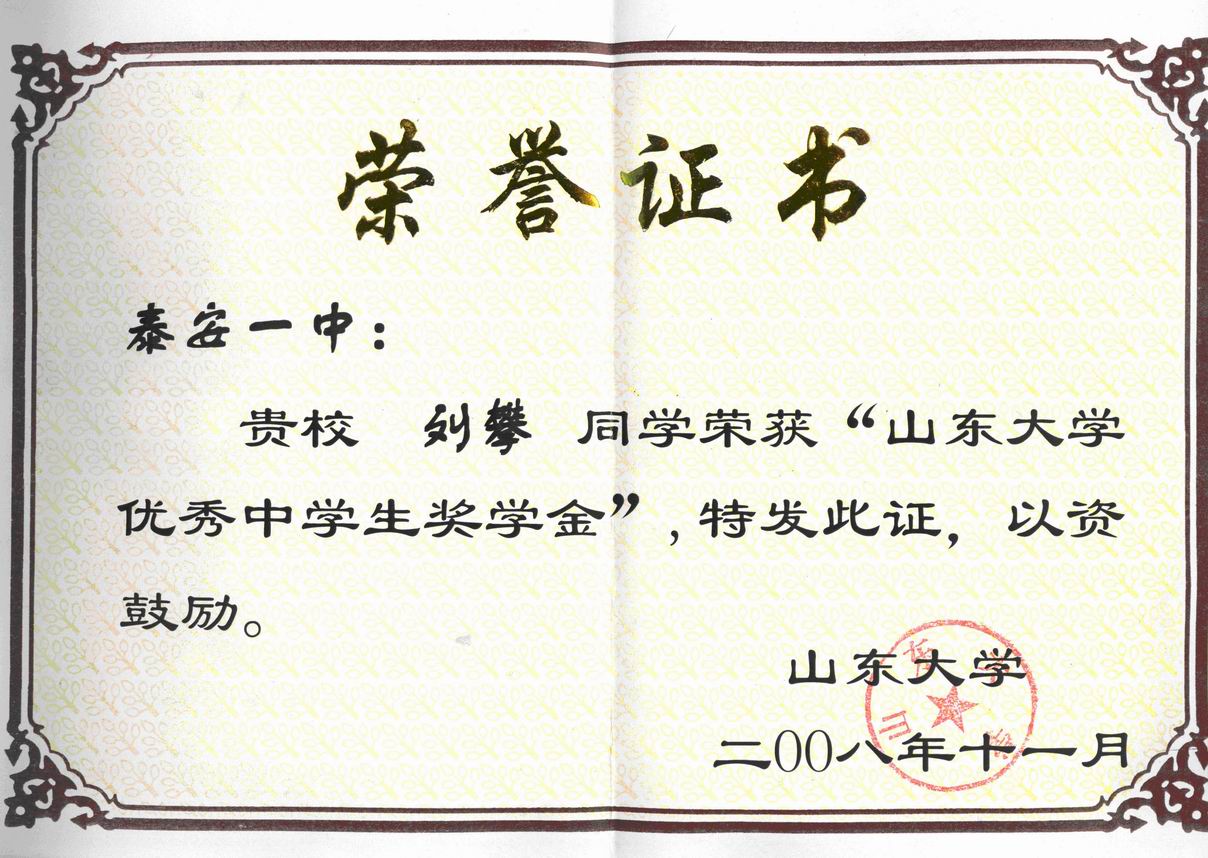 荣誉证书
泰安一中：
贵校 刘攀 同学荣获“山东大学
优秀中学生奖学金”,特发此证，以资
鼓励。
山东大学
二00八年十一月